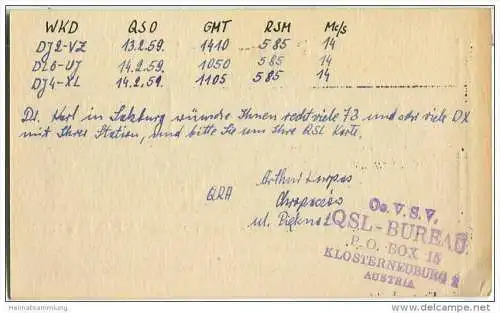 WKD QSO GMT RSM Mc/s
DJ2-VZ 13.2.59. 1410 585 14
DL6-UJ 14.2.59. 1050 585 14
DJ4-XL 14.2.59. 1105 585 14
Karl in Salzburg wünsche Ihnen recht viele 73 und sehr viele DX
mit Ihrer Station, und bitte Sie um Ihre QSL Karte.
QRA Arthur
ul.
Oe.V.S.V.
QSL-BUREAU
P.O. BOX 15
KLOSTERNEUBURG 2
AUSTRIA
Heimatsammlung
www.ansichtskartenversand.com